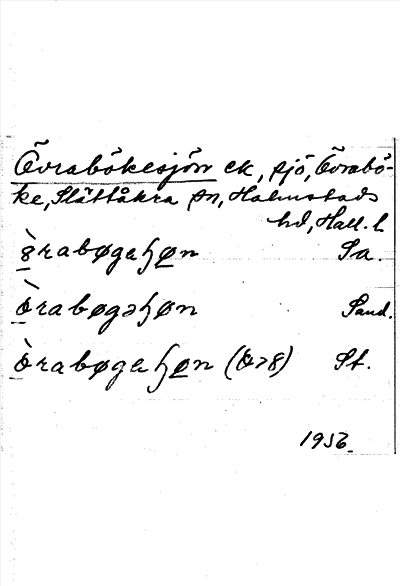 Övrabökesjön ek, sjö, Övrabö-
ke, Slättåkra sn, Halmstads
hd, Hall. l.
òrabøgaɧøn Sa.
òrabøgəɧøn Sand.
òrabøgaɧøn (ò>8) St.
1956.